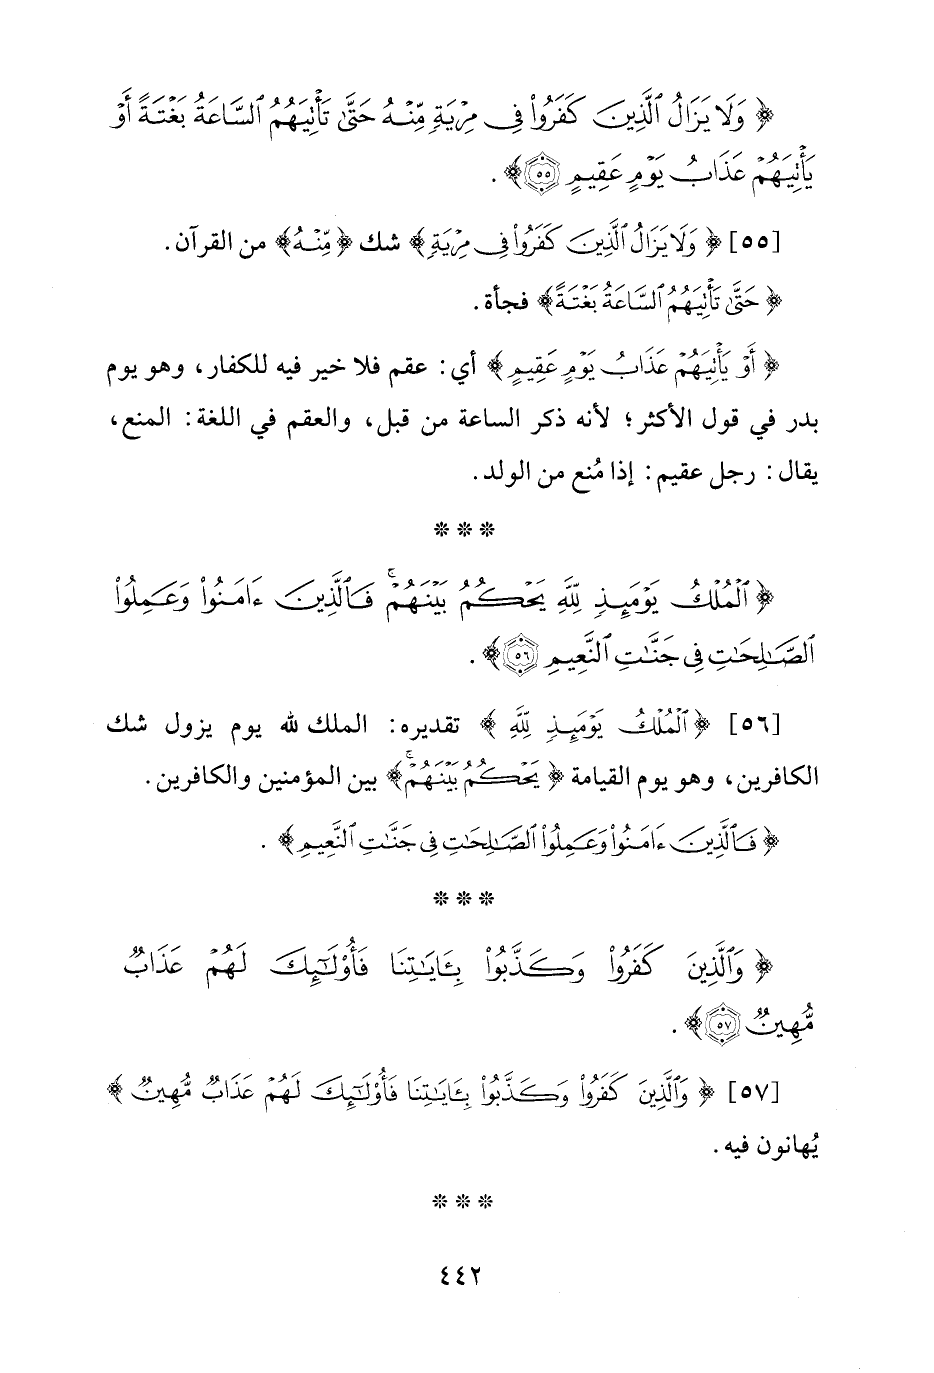 ﴿ وَلَا يَزَالُ ٱلَّذِينَ كَفَرُوا۟ فِى مِرْيَةٍ مِّنْهُ حَتَّىٰ تَأْتِيَهُمُ ٱلسَّاعَةُ بَغْتَةً أَوْ
يَأْتِيَهُمْ عَذَابُ يَوْمٍ عَقِيمٍ ۝٥٥﴾ .
[٥٥] ﴿ وَلَا يَزَالُ ٱلَّذِينَ كَفَرُوا۟ فِى مِرْيَةٍ﴾ شك ﴿مِّنْهُ﴾ من القرآن.
﴿ حَتَّىٰ تَأْتِيَهُمُ ٱلسَّاعَةُ بَغْتَةً﴾ فجأة.
﴿ أَوْ يَأْتِيَهُمْ عَذَابُ يَوْمٍ عَقِيمٍ﴾ أي: عقم فلا خير فيه للكفار، وهو يوم
بدر في قول الأكثر؛ لأنه ذكر الساعة من قبل، والعقم في اللغة: المنع،
يقال: رجل عقيم: إذا مُنع من الولد.
* * *
﴿ ٱلْمُلْكُ يَوْمَئِذٍ لِّلَّهِ يَحْكُمُ بَيْنَهُمْ ۚ فَٱلَّذِينَ ءَامَنُوا۟ وَعَمِلُوا۟
ٱلصَّٰلِحَٰتِ فِى جَنَّٰتِ ٱلنَّعِيمِ ۝٥٦﴾ .
[٥٦] ﴿ٱلْمُلْكُ يَوْمَئِذٍ لِّلَّهِ ﴾ تقديره: الملك لله يوم يزول شك
الكافرين، وهو يوم القيامة ﴿يَحْكُمُ بَيْنَهُمْ ۚ﴾ بين المؤمنين والكافرين.
﴿ فَٱلَّذِينَ ءَامَنُوا۟ وَعَمِلُوا۟ ٱلصَّٰلِحَٰتِ فِى جَنَّٰتِ ٱلنَّعِيمِ﴾ .
* * *
﴿ وَٱلَّذِينَ كَفَرُوا۟ وَكَذَّبُوا۟ بِـَٔايَٰتِنَا فَأُو۟لَٰٓئِكَ لَهُمْ عَذَابٌ
مُّهِينٌ ۝٥٧﴾ .
[٥٧] ﴿ وَٱلَّذِينَ كَفَرُوا۟ وَكَذَّبُوا۟ بِـَٔايَٰتِنَا فَأُو۟لَٰٓئِكَ لَهُمْ عَذَابٌ مُّهِينٌ ﴾
يُهانون فيه.
* * *
٤٤٢